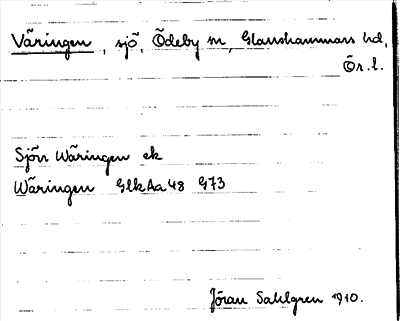 Väringen, sjö, Ödeby sn, Glanshammars hd,
Ör. l.
Sjön Wäringen ek
Wäringen GlkAa48 G73
Jöran Sahlgren 1910.